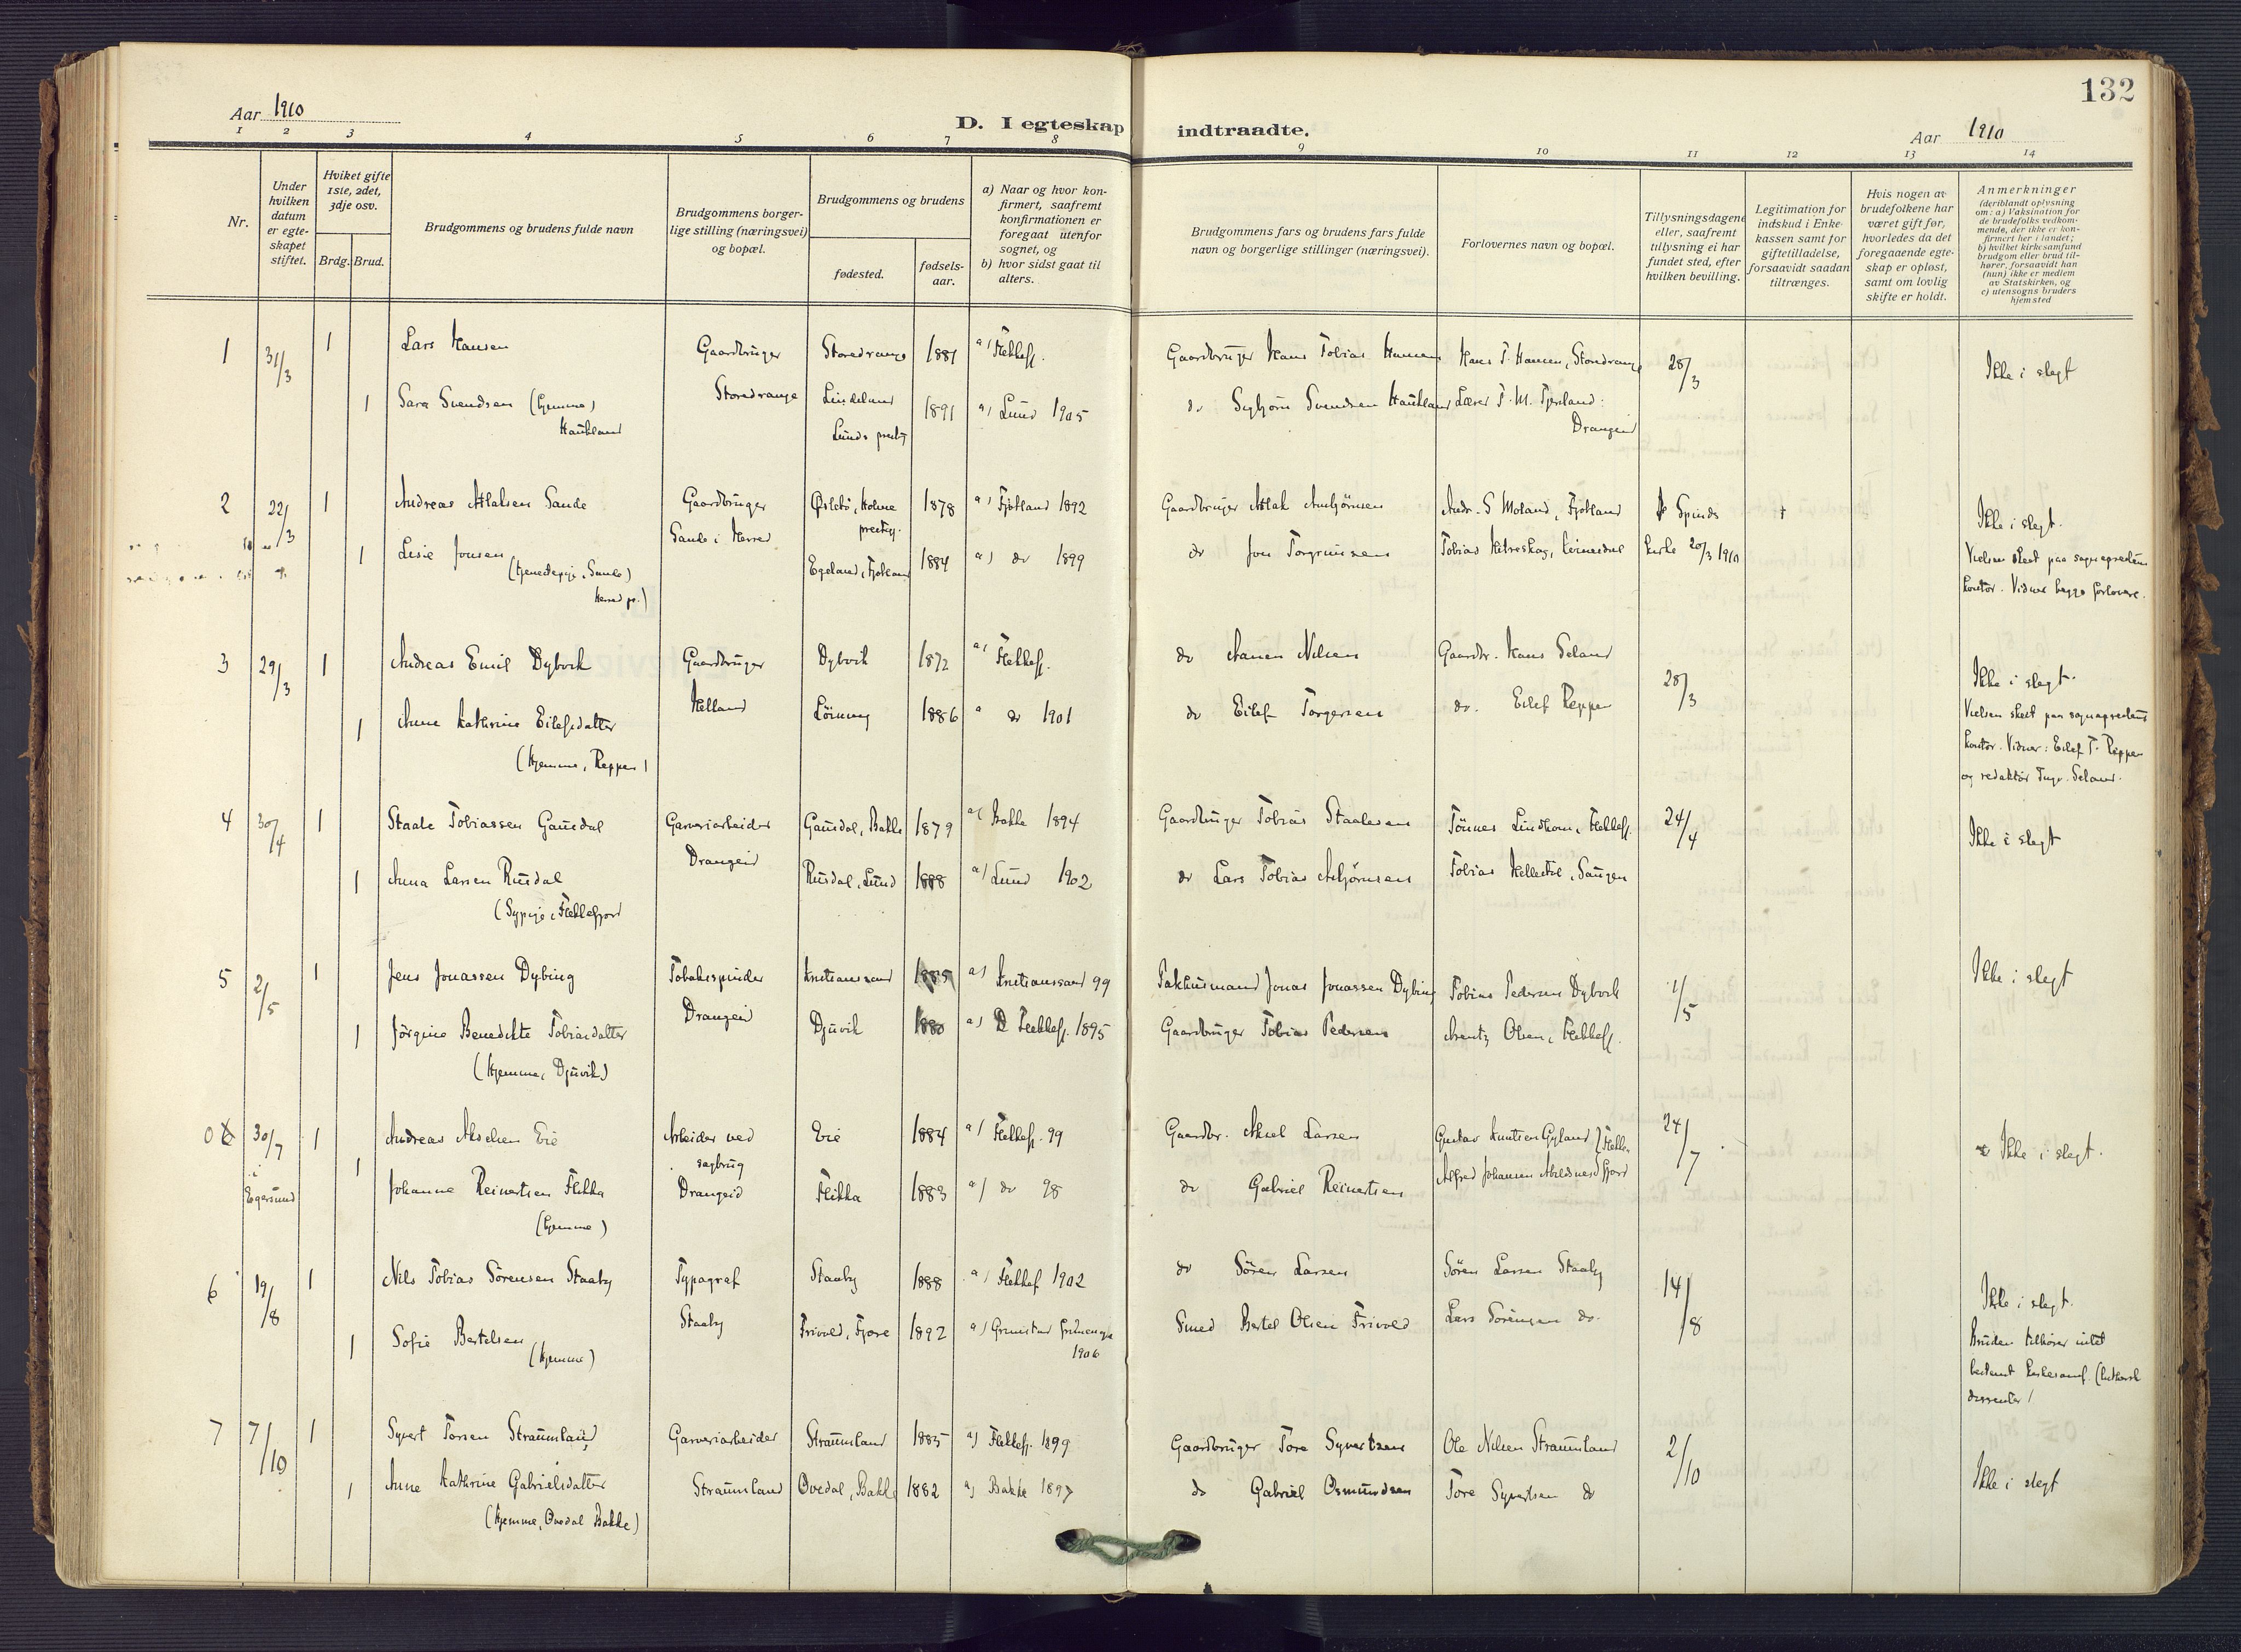 132
Aar 1910
D. I egteskap indtraadte.
Aar 1910
1 2 3 4 5 6 7 8 9 10 11 12 13 14
Nr.
Under hvilken datum er egte-skapet stiftet.
Hviket gifte 1ste, 2det, 3dje osv.
Brdg. Brud.
Brudgommens og brudens fulde navn
Brudgommens borger-lige stilling (næringsvei) og bopæl.
Brudgommens og brudens
fødested.
fødsels-aar.
a) Naar og hvor kon-firmert, saafremt konfirmationen er foregaat utenfor sognet, og
b) hvor sidst gaat til alters.
Brudgommens fars og brudens fars fulde navn og borgerlige stillinger (næringsvei).
Forlovernes navn og bopæl.
Tillysningsdagene eller, saafremt tillysning ei har fundet sted, efter hvilken bevilling.
Legitimation for indskud i Enke-kassen samt for giftetilladelse, forsaavidt saadan tiltrænges.
Hvis nogen av brudefolkene har været gift før, hvorledes da det foregaaende egte-skap er opløst, samt om lovlig skifte er holdt.
Anmerkninger (deriblandt oplysning om: a) Vaksination for de brudefolks vedkom-mende, der ikke er kon-firmert her i landet; b) hvilket kirkesamfund brudgom eller brud til-hører, forsaavidt han (hun) ikke er medlem av Statskirken, og c) utensogns bruders hjemsted
1 31/3 1 Lars Hansen Gaardbruger Storedrange 1881 a) Flekkefj. Gaardbruger Hans Tobias Hansen Hans T. Hansen, Storedrange 28/3 Ikke i slegt
1 Sara Svendsen (hjemme) Storedrange 1891 a) Lund 1905 do Svendsen Haukland Lærer T. M.
Haukland Lunds prestg Drangeid
2 22/3 1 Andreas Atlaksen Sande Gaardbruger Øslebø, Holme 1878 a) Fjotland 1892 Gaardbruger Atlak Andr. S Moland, Fjotland Spinds + Ikke i slegt.
prestegj. Sande i Herred
1 Lisie Jonsen Egeland, Fjotland 1884 a) do 1899 do Jon Torgrimsen Tobias kirke 20/3 1910 Vielsen skeet paa sogneprestens
(tjenestepige, Sande) Herred pr.) kontor. Vidner begge forlovere.
3 29/3 1 Andreas Emil Dybvik Gaardbruger Dybvik 1872 a) Flekkefj. do Aanen Nilsen Gaardbr. Hans Seland 28/3 Ikke i slegt.
Helland
1 Anne Kathrine Eilefsdatter 1886 a do 1901 do Eilef Torgersen do. Eilef Reppen Vielsen skeet paa sogneprestens
(hjemme, Reppen) kontor. Vidner: Eilef T. Reppen
og redaktør Seland.
4 30/4 1 Staale Tobiassen Gausdal Garveriarbeider Gausdal, Bakke 1879 a) Bakke 1894 Gaardbruger Tobias Staalesen Tønnes Lindhom, Flekkefj. 24/4 Ikke i slegt
Drangeid
1 Anna Larsen Rusdal Rusdal, Lund 1888 a) Lund 1902 do Lars Tobias Asbjørnsen Tobias
(Sypige, Flekkefjord
5 2/5 1 Jens Jonassen Dybing Tobakspinder Kristianssand 1885 a) Kristianssand 99 Pakhusmand Jonas Jonassen Dybing Tobias Pedersen Dybvik 1/5 Ikke i slegt
Drangeid
1 Jørgine Benedikte Tobiasdatter Djuvik 1880 a) Flekkefj. 1895 Gaardbruger Tobias Pedersen Arentz Olsen, Flekkefj.
(hjemme, Djuvik)
0 30/7 1 Andreas Akselsen Eie Arbeider ved Eie 1884 a) Flekkefj. 99 Gaardbr. Aksel Larsen Gustav Knutsen Gyland } Flekke- 24/7 Ikke i slegt.
i Egersund 1 sagbrug
Johanne Reinertsen Flikka Drangeid Flikka 1883 a) do 98 do Gabriel Reinertsen Alfred Johansen Abelsnes } fjord
(hjemme)
6 19/8 1 Nils Tobias Sørensen Staaby Typograf Staaby 1888 a) Flekkef. 1902 do Søren Larsen Søren Larsen Staaby 14/8 Ikke i slegt.
Staaby
1 Sofie Bertelsen (hjemme) Frivold, Fjære 1892 a) Grimstad frimenigh 1906 Smed Bertel Olsen Frivold Lars Sørensen do. Bruden tilhører intet
bestemt kirkesamf. (luthersk
dissenter)
7 7/10 1 Syvert Torsen Straumland Garveriarbeider Straumland 1885 a) Flekkefj. 1899 Gaardbruger Tore Syvertsen Ole Nilsen Straumland 2/10
1 Anne Kathrine Gabrielsdatter Straumland Ovedal, Bakke 1882 a) Bakke 1897 do Gabriel Osmundsen Tore Syvertsen do Ikke i slegt
(hjemme, Ovedal Bakke)